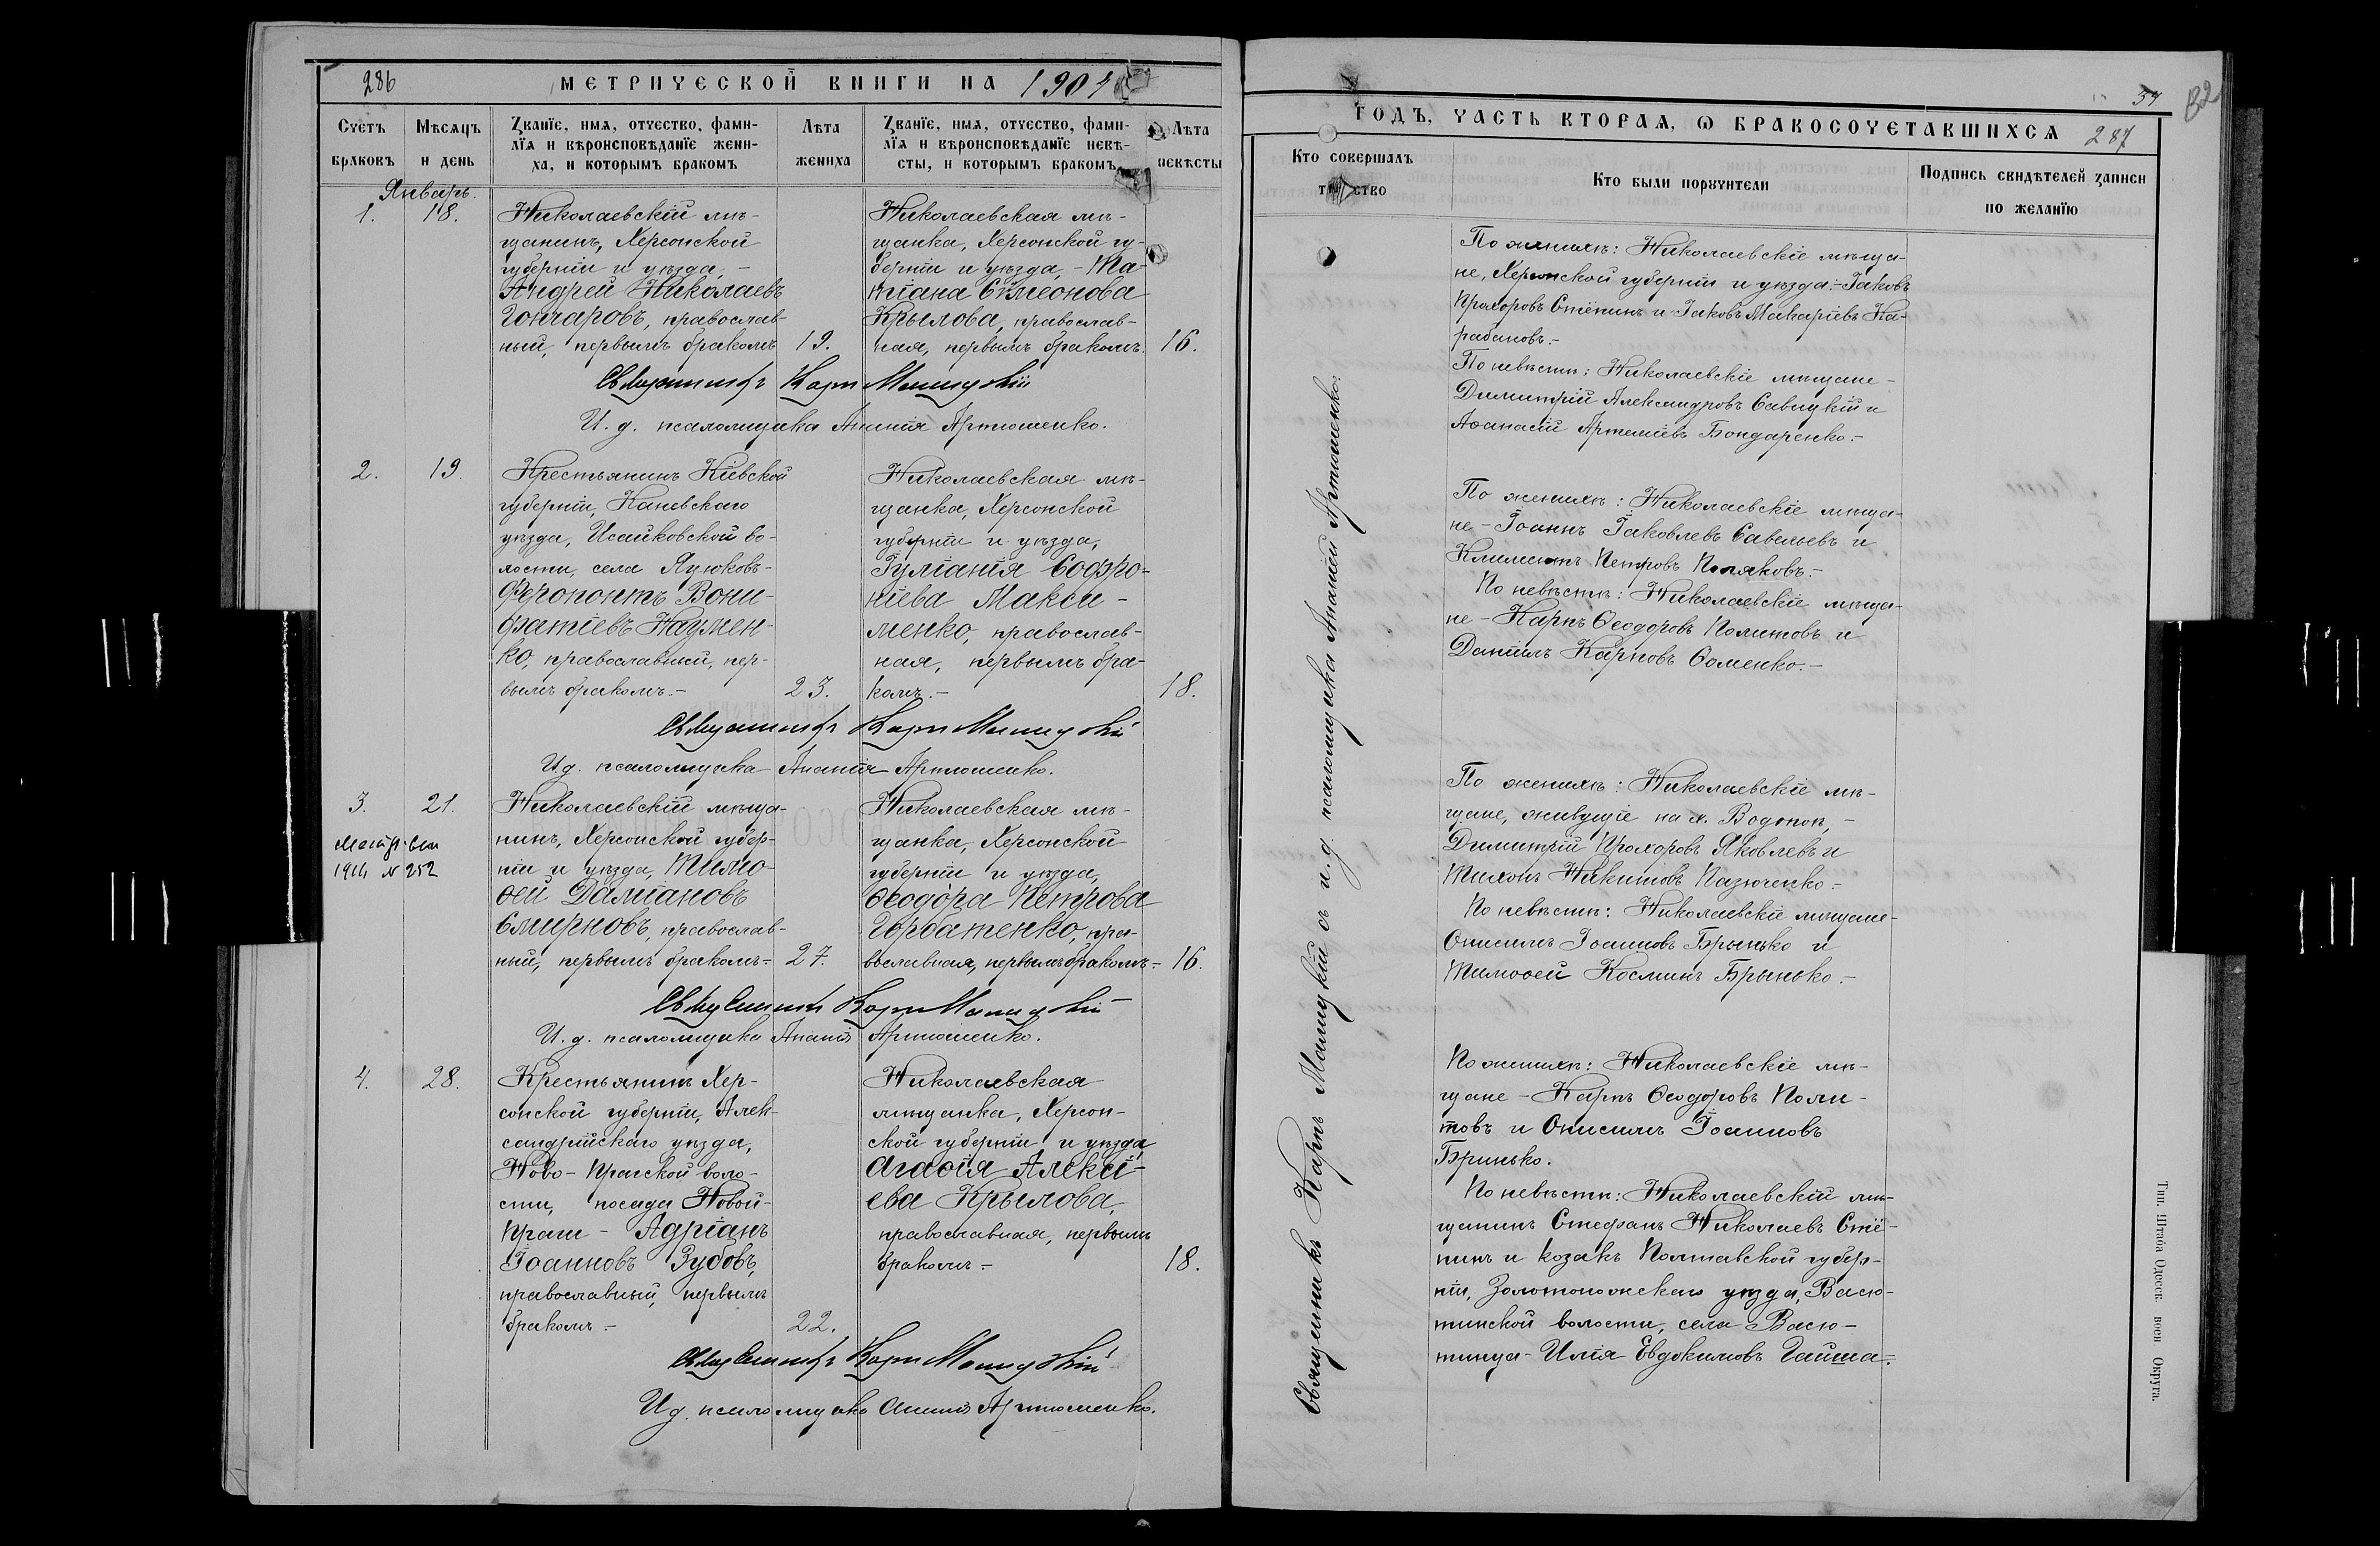 286
МЕТРИЧЕСКОЙ КНИГИ НА 1904
Счетъ браковъ
Мѣсяцъ и день
Званїе, имя, отчество, фами-
лїя и вѣроисповѣданїе жени-
ха, и которымъ бракомъ
Лѣта жениха
Званїе, имя, отчество, фами-
лїя и вѣроисповѣданїе невѣ-
сты, и которымъ бракомъ
Лѣта невѣсты
Январь.
1. 18.
Николаевскій мѣ-
щанинъ, Херсонской
губерніи и уѣзда, -
Андрей Николаевъ
Гончаровъ, православ-
ный, первымъ бракомъ 19.
Николаевская мѣ-
щанка, Херсонской гу-
берніи и уѣзда, - Та-
тіана Симеонова
Крылова, православ-
ная, первымъ бракомъ. 16.
Священникъ Карпъ
И. д. псаломщика Ананія Артюшенко.
2. 19.
Крестьянинъ Кіевской
губерніи, Каневскаго
уѣзда, Исайковской во-
лости, села
Ферапонтъ Вони-
фатіевъ Наумен-
ко, православный, пер-
вымъ бракомъ.- 23.
Николаевская мѣ-
щанка, Херсонской
губерніи и уѣзда,
Іуліанія Софро-
ніева Макси-
менко, православ-
ная, первымъ бра-
комъ.- 18.
Священникъ Карпъ
И. д. псаломщика Ананія Артюшенко.
3. 21.
1914 N 252
Николаевскій мѣща-
нинъ, Херсонской губер-
ніи и уѣзда, Тимо-
ѳей Даміановъ
Смирновъ, православ-
ный, первымъ бракомъ- 27.
Николаевская мѣ-
щанка, Херсонской
губерніи и уѣзда,
Ѳеодора Петрова
Горбатенко, пра-
вославная, первымъ бракомъ- 16.
Священникъ Карпъ
И. д. псаломщика Ананія Артюшенко.
4. 28.
Крестьянинъ Хер-
сонской губерніи, Алек-
сандрійскаго уѣзда,
Ново-Прагской воло-
сти, посада Новой-
Праги - Адріанъ
Іоанновъ Зубовъ,
православный, первымъ
бракомъ - 22.
Николаевская
мѣщанка, Херсон-
ской губерніи и уѣзда,
Агаѳія Алексі-
ева Крылова,
православная, первымъ
бракомъ - 18.
Священникъ Карпъ
И. д. псаломщика Ананія Артюшенко.
32
ГОДЪ, ЧАСТЬ ВТОРАЯ, Ѡ БРАКОСОЧЕТАВШИХСЯ 287
Кто совершалъ
таинство
Кто были поручители
Подпись свидѣтелей записи
по желанїю
Священникъ Карпъ съ и. д. псаломщика Ананіей Артюшенко.
По женихѣ: Николаевскіе мѣща-
не, Херсонской губерніи и уѣзда:- Іаковъ
Прохоровъ Стёпинъ и Іаковъ Макаріевъ Ка-
рабановъ.-
По невѣстѣ: Николаевскіе мѣщане -
Димитрій Александровъ Савицкій и
Аѳанасій Артеміевъ Бондаренко.-
По женихѣ: Николаевскіе мѣща-
не - Іоаннъ Іаковлевъ Савельевъ и
Климентъ Петровъ Поляковъ.-
По невѣстѣ: Николаевскіе мѣща-
не - Карпъ Ѳеодоровъ Политовъ и
Даніилъ Карповъ Ѳоменко.-
По женихѣ: Николаевскіе мѣ-
щане, живущіе на х. Водопоѣ, -
Димитрій Прохоровъ Яковлевъ и
Тихонъ Никитовъ Пазюченко.-
По невѣстѣ: Николаевскіе мѣщане-
Онисимъ Іоанновъ Брынько и
Тимоѳей Косминъ Брынько.-
По женихѣ: Николаевскіе мѣ-
щане - Карпъ Ѳеодоровъ Поли-
товъ и Онисимъ Іоанновъ
Бринько.
По невѣстѣ: Николаевскій мѣ-
щанинъ Стефанъ Николаевъ Стё-
пинъ и козакъ Полтавской губер-
ніи, Золотоношскаго уѣзда, Васю-
тинской волости, села Васю-
тинца - Илія Евдокимовъ Гайша.-
Тип. Штаба Одесск. воен Округа.